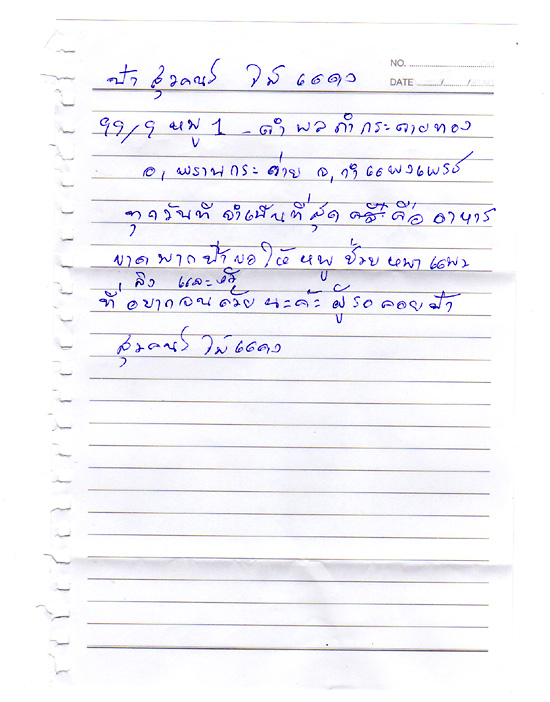 NO.
DATE ....../....../......
ป้า สุวคนธ์ ใบ้ แดง
99/9 หมู่ 1 - ตำบล ถ้ำกระต่ายทอง
อ, พรานกระต่าย จ, กำแพงเพชร
ทุกวันที่ จำเป็นที่สุด คือ อาหาร
ขาด มาก ป้าขอให้หนู ช่วย หมา แมว
ลิง และ
ที่ อยาก จน ด้วย นะคะ ผู้รอคอย ป้า
สุวคนธ์ ใบ้แดง